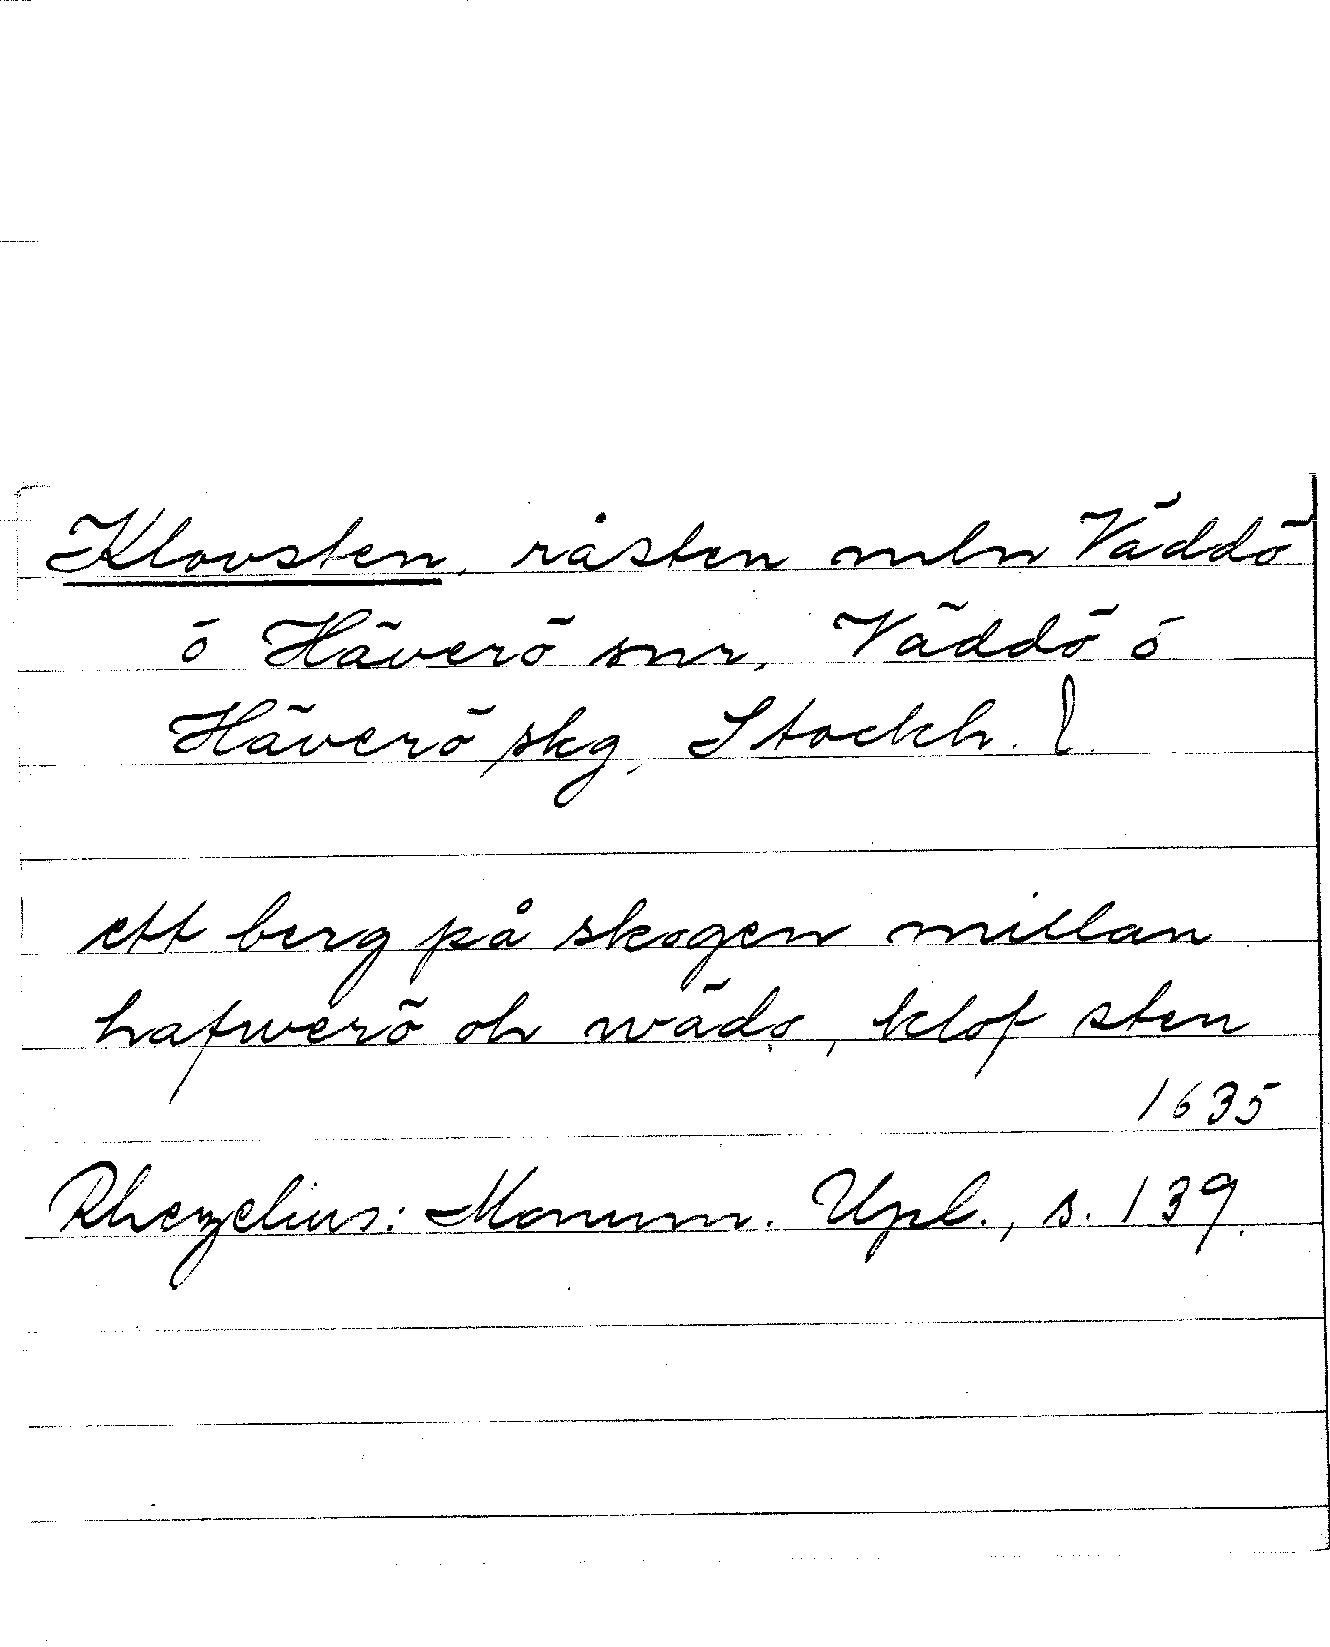 Klovsten, råsten mln Väddö
o Häverö snr, Väddö o
Häverö skg, Stockh. l.
ett berg på skogen millan
hafwerö oh wädö, klof sten
1635
Rhezelius: Monum. Upl., s. 139.